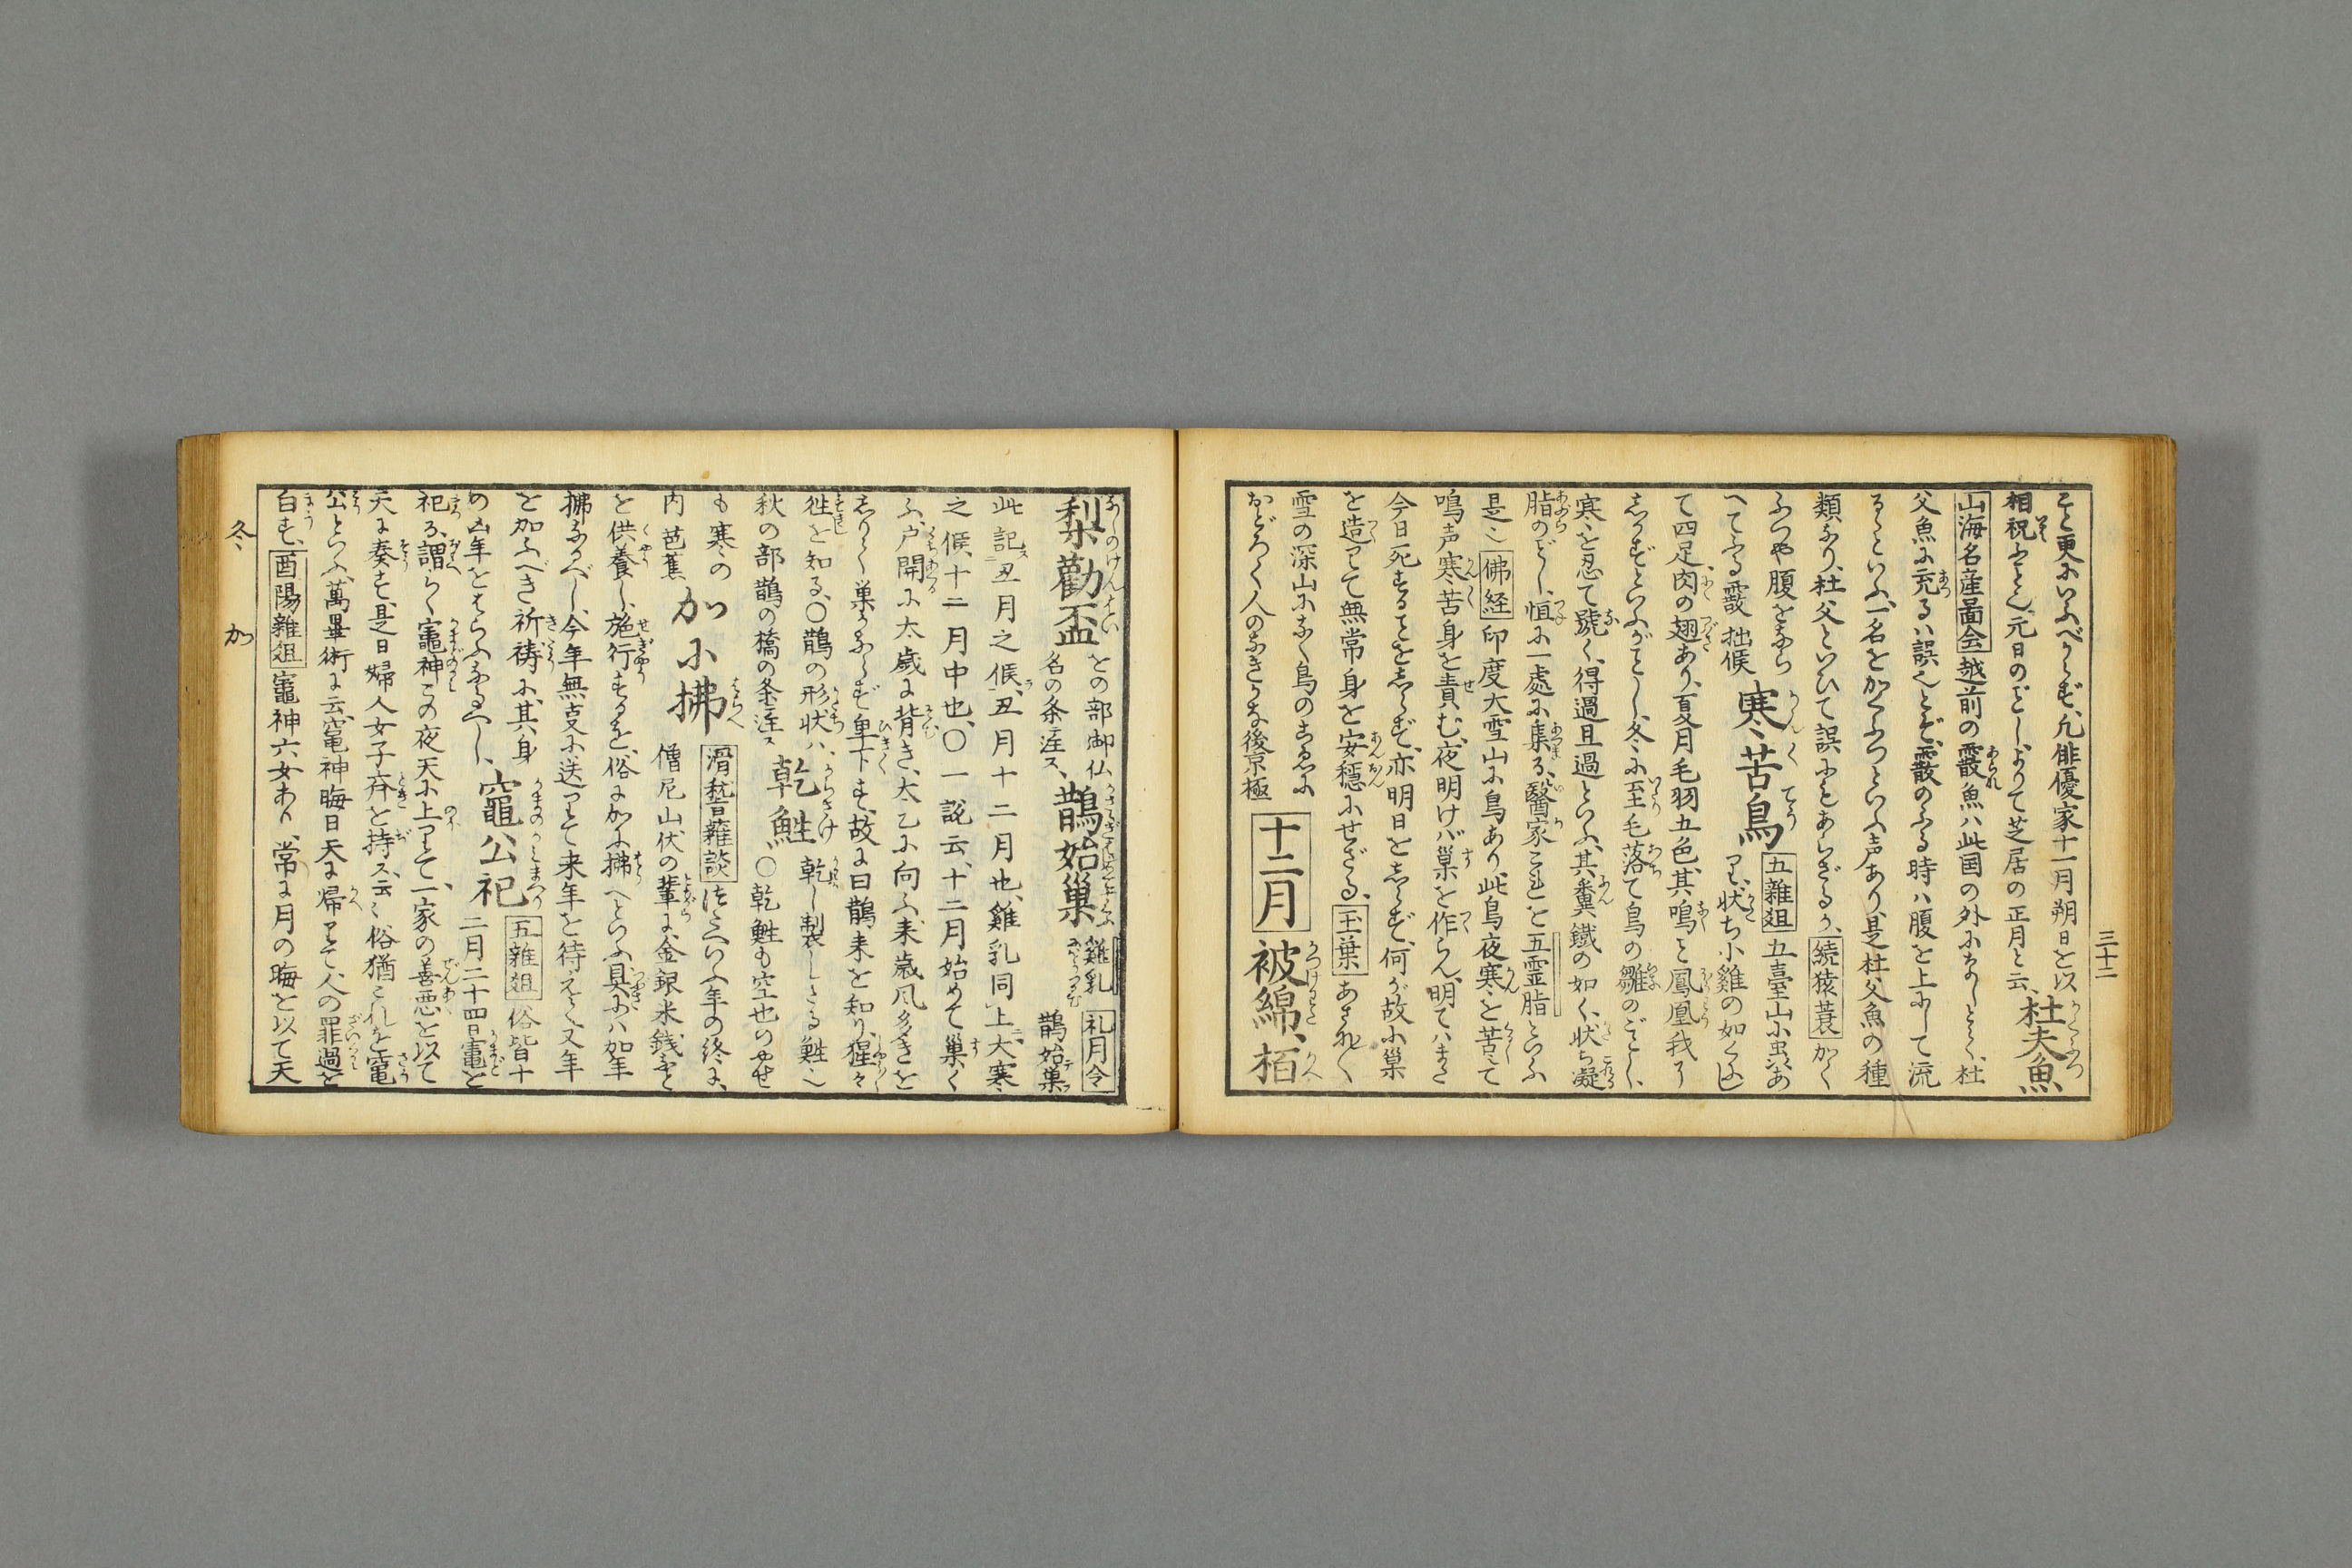 三十二
そと更にいふべからず、凡俳優家十一月朔日を以
相祝ふこと、元日のごとし、よりて芝居の正月と云、杜夫魚
山海名産圖会 越前の霰魚ハ此国の外になしとぞ、杜
父魚に充るハ誤也とぞ、霰のふる時ハ腹を上にして流
るゝといふ、一名をかくふつといふ声あり、是杜父魚の種
類なり、杜父といひて誤にもあらざるか、続猿蓑 かく
ふつや腹をならべてふる霰 拙候 寒苦鳥 五雜爼 五臺山に虫あ
り、状ち小雞の如くにし
て四足、肉の翅あり、夏月毛羽五色、其鳴と鳳凰我に
しかずといふがごとし、冬に至毛落て鳥の雛のごとし、
寒を忍て號く、得過且過といふ、其糞鐵の如く、状ち凝
脂のごとし、恒に一處に集る、醫家これを五霊脂といふ
是也 佛経 印度大雪山に鳥あり、此鳥夜寒を苦て
鳴声寒苦身を責む、夜明けバ巣を作らん、明てハまた
今日死することをしらず、亦明日をしらず、何が故に巣
を造りて無常身を安穏にせざる、玉葉 あされ〱
雪の深山になく鳥のこゑに
おどろく人のなきかな 後京極 十二月 被綿、栢
梨勸盃 との部御仏
名の条注ス、鵲始巣 雞乳 礼月令
鵲始巣
此記丑月之候、丑月十二月也、雞乳同上、大寒
之候、十二月中也、〇一説云、十二月始めて巣く
ふ、戸開に太歳に背き、太乙に向ふ、来歳風多きを
しりて巣かならず卑下す、故に曰鵲来を知り、猩々
往を知る、〇鵲の形状ハ、
秋の部鵲の橋の条注ス 乾鮭 乾し製したる鮭也
〇乾鮭も空也のやせ
も寒の
内 芭蕉 加ふ拂 滑稽雜談 注といふ年の終に、
僧尼山伏の輩に、金銀米銭なと
を供養し、施行するを、俗に加ふ拂へといふ、具にハ加年
拂なるべし、今年無支に送りて来年を待えて又年
を加ふべき祈祷に、其身
の凶年をはらふなるべし、竈公祀 五雜爼 俗皆十
二月二十四日竈を
祀る、謂らく竈神この夜天に上りて、一家の善悪を以て
天に奏す、是日婦人女子斉を持ス云々、俗猶これを竈
公といふ、萬畢術に云、竈神晦日天に帰りて、人の罪過を
白す、酉陽雜爼 竈神六女あり、常に月の晦を以て天
冬 加